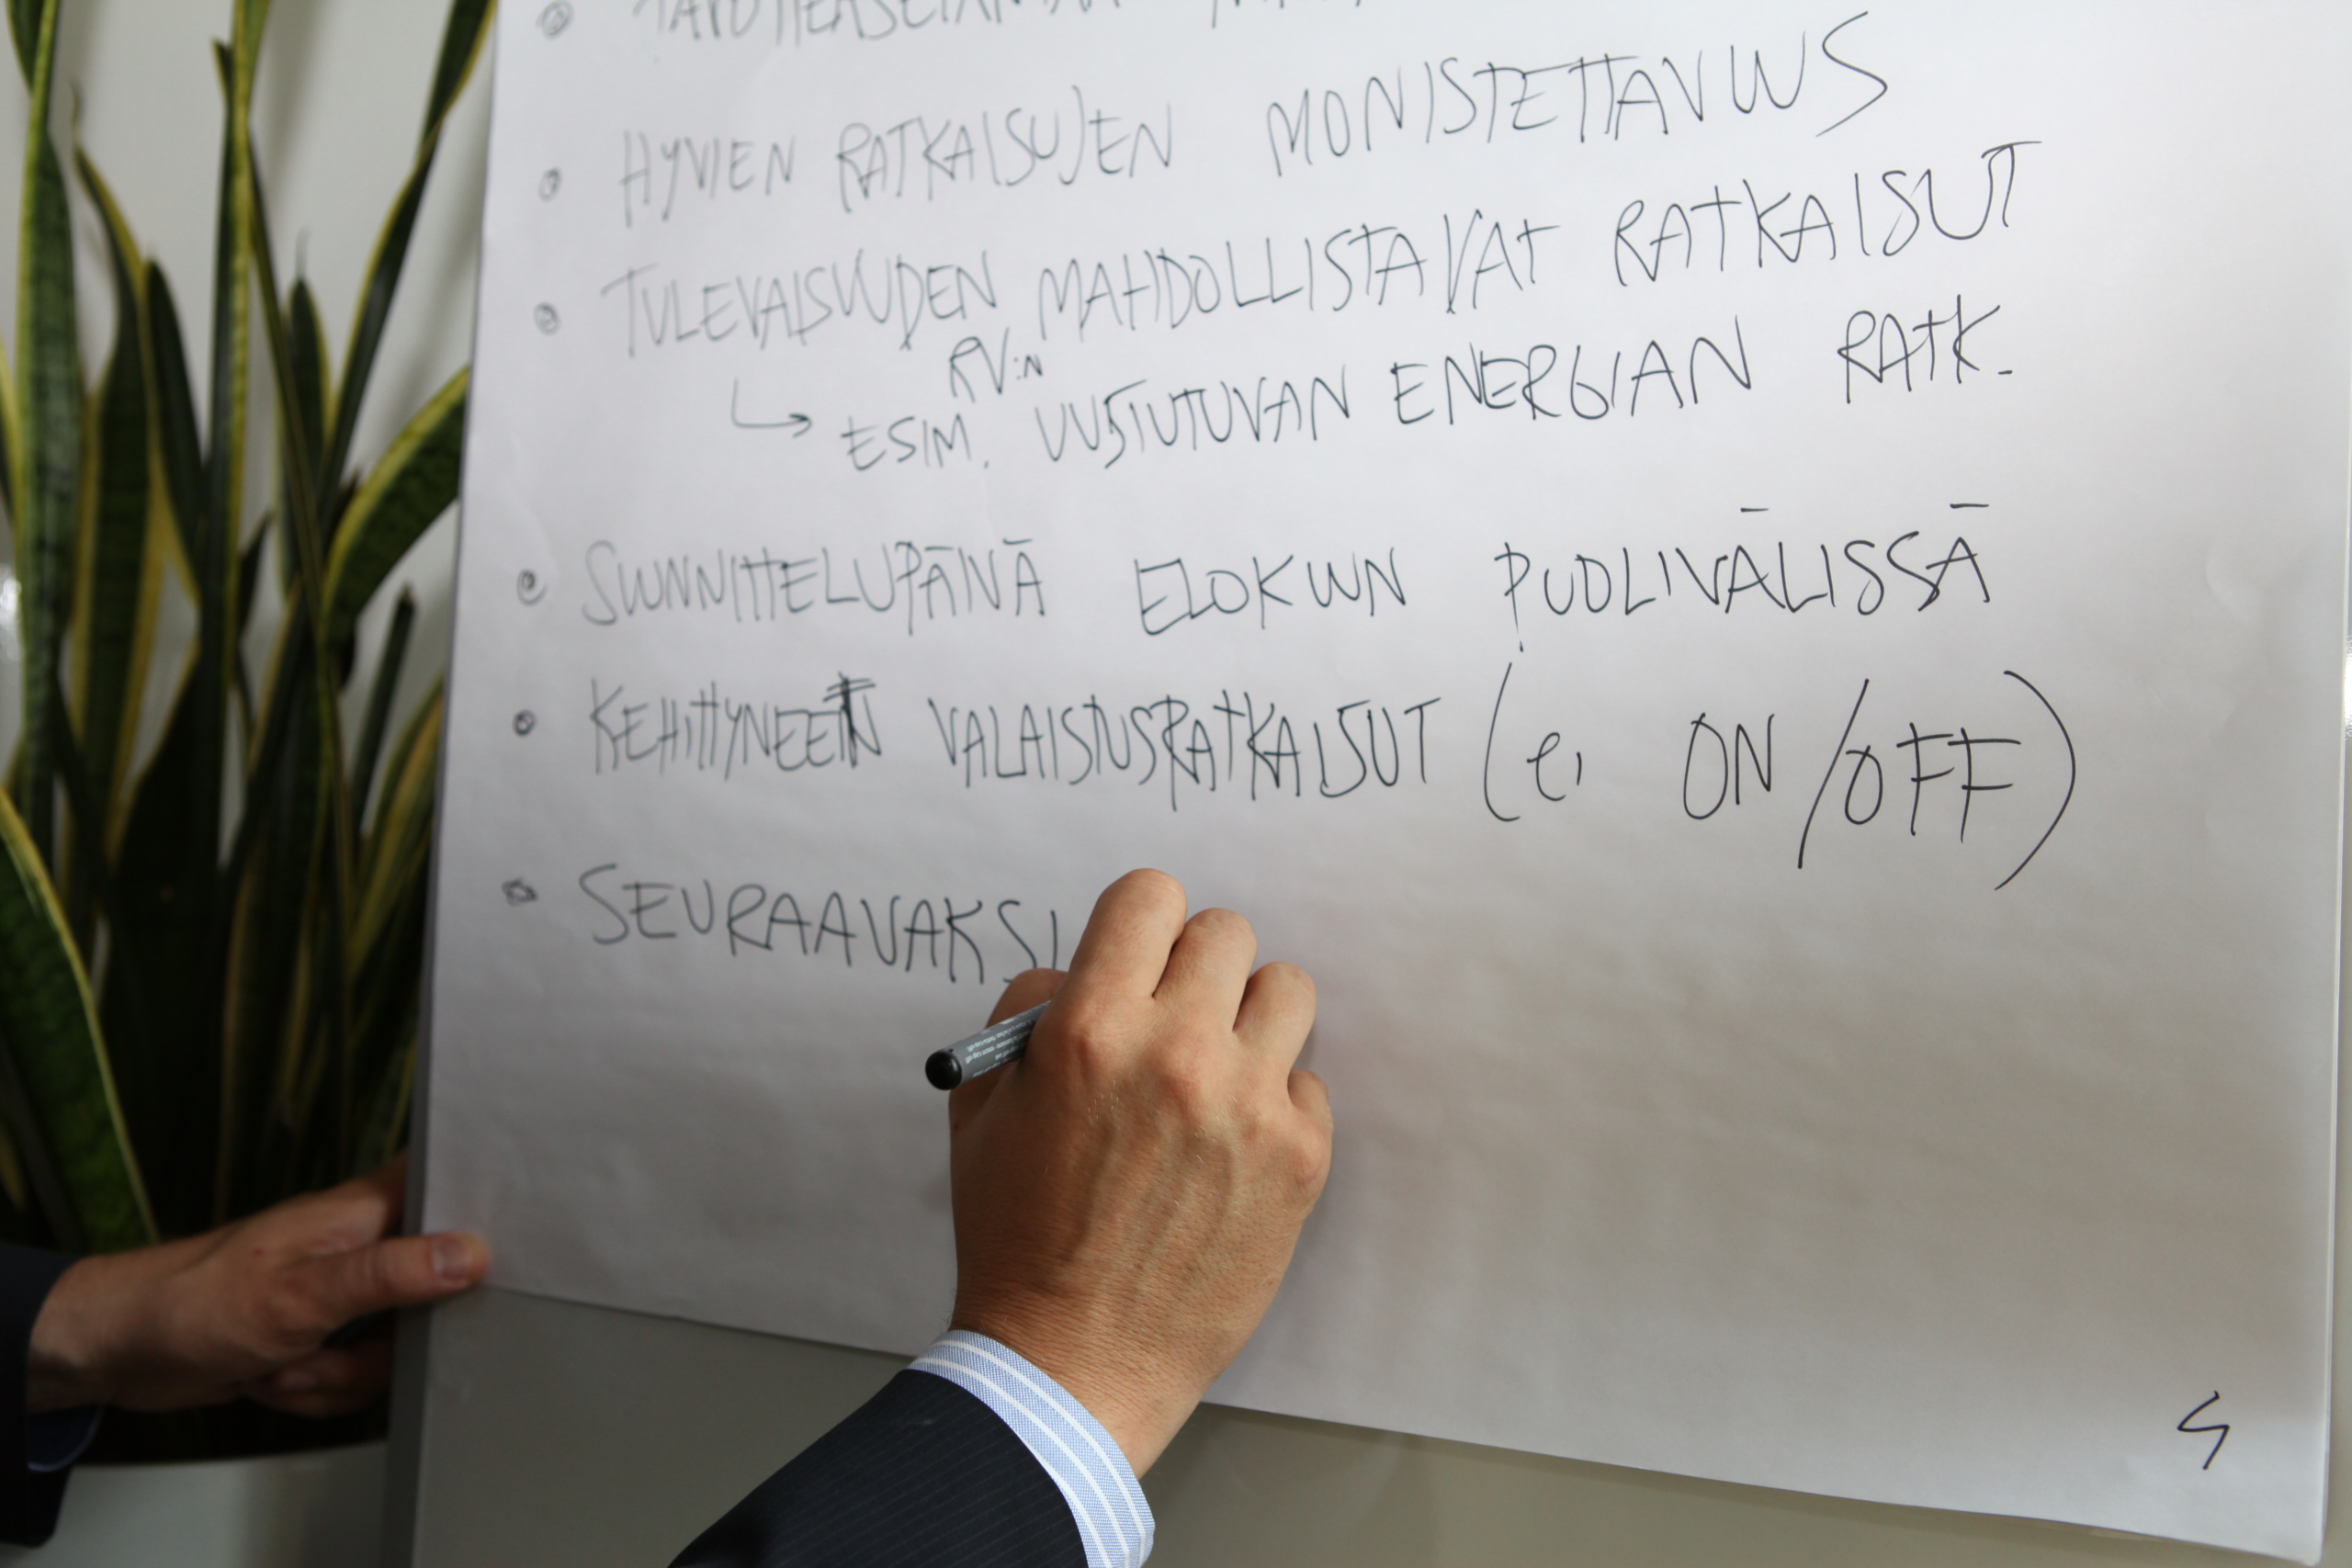 HYVIEN RATKAISUJEN MONISTETTAVUUS
TULEVAISUUDEN MAHDOLLISTAVAT RATKAISUT
RV:N
→ ESIM. UUSIUTUVAN ENERGIAN RATK.
SUUNNITTELUPÄIVÄ ELOKUUN PUOLIVÄLISSÄ
KEHITTYNEET VALAISTUSRATKAISUT (ei ON/OFF)
SEURAAVAKSI